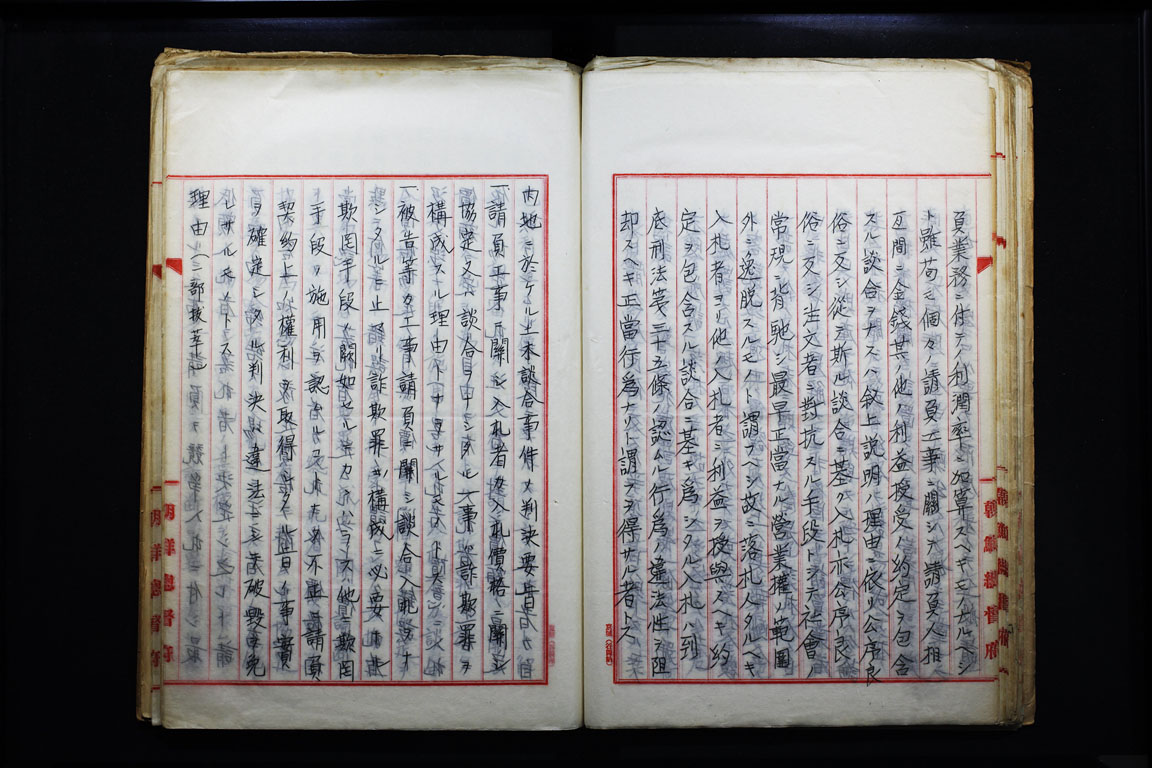 夏業務ニ付テノ利潤率ニ加算スヘキモノナルヘシ
ト雖苟モ個々ノ請負工事ニ關シテ請負人相
互間ニ金錢其ノ他ノ利益授受ノ約定ヲ包含
スル談合ヲナスハ敍上説明ノ理由ニ依リ公序良
俗ニ反シ從テ斯ル談合ニ基ク入札亦公序良
俗ニ反シ注文者ニ對抗スル手段トシテ社會ノ
常規ニ背馳シ最早正當ナル營業權ノ範圍
外ニ逸脱スルモノト謂フヘシ故ニ落札人タルヘキ
入札者ヨリ他ノ入札者ニ利益ヲ授與スヘキ約
定ヲ包含スル談合ニ基キ爲シタル入札ハ到
底刑法第三十五條ノ認ムル行爲ノ違法性ヲ阻
却スヘキ正當行爲ナリト謂フヲ得サル者トス
内地ニ於ケル土木談合事件ノ判決要旨
一、請負工事ニ關シ入札者カ入札價格ニ關シ
協定又ハ談合ヲ申シタル事ハ詐欺罪ヲ
構成スル理由ト
一、被告等カ工事請負ニ關シ談合入札ヲナ
シタルニ止リ詐欺罪ノ構成ニ必要ナル
欺罔手段ヲ闕如セル 他ニ欺罔
手段ヲ施用 認 不正ニ請負
契約上ノ權利ヲ取得シタル旨ノ事實
ヲ確定シタル判決ハ違法 破毀ヲ免
レサルモノトス
理由(三部拔萃)
朝鮮總督府